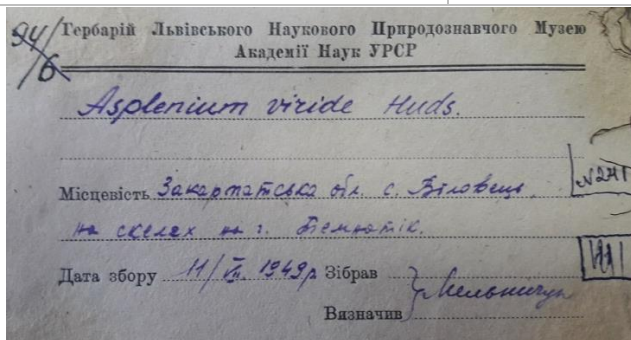 94/6
Гербарій Львівського Наукового Природознавчого Музею
Академії Наук УРСР
Asplenium viride Huds.
Місцевість Закарпатська обл. с. Біловець,
на скелях на г. Темнатік.
N241
Дата збору 11/VII. 1949 р Зібрав
Вязначив Мельничук